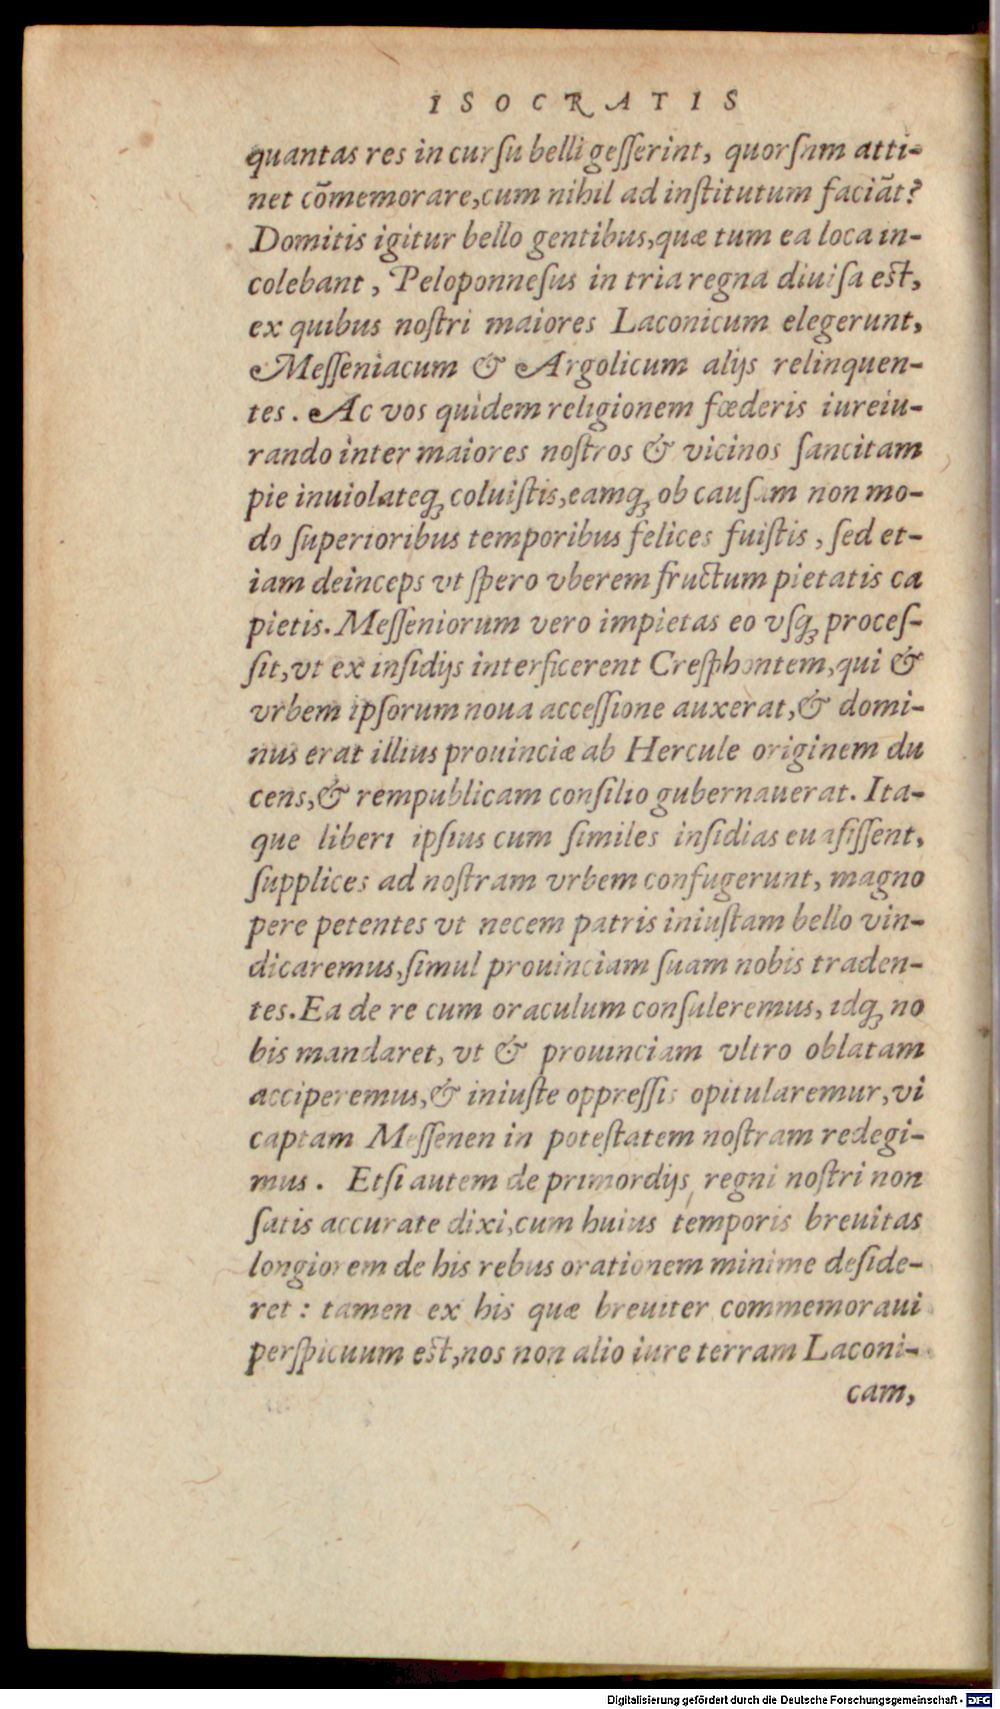 ISOCRATIS
quantas res in cursu belli gesserint, quorsum atti-
net cōmemorare,cum nihil ad institutum faciāt?
Domitis igitur bello gentibus,quæ tum ea loca in-
colebant, Peloponnesus in tria regna diuisa est,
ex quibus nostri maiores Laconicum elegerunt,
Messeniacum & Argolicum alijs relinquen-
tes. Ac vos quidem religionem fœderis iureiu-
rando inter maiores nostros & vicinos sancitam
pie inuiolateq; coluistis,eamq; ob causam non mo-
do superioribus temporibus felices fuistis, sed et-
iam deinceps vt spero vberem fructum pietatis ca
pietis. Messeniorum vero impietas eo vsq; proces-
sit,vt ex insidijs interficerent Cresphontem,qui &
vrbem ipsorum noua accessione auxerat,& domi-
nus erat illius prouinciæ ab Hercule originem du
cens,& rempublicam consilio gubernauerat. Ita-
que liberi ipsius cum similes insidias euasissent,
supplices ad nostram vrbem confugerunt, magno
pere petentes vt necem patris iniustam bello vin-
dicaremus,simul prouinciam suam nobis traden-
tes. Ea de re cum oraculum consuleremus, idq; no
bis mandaret, vt & prouinciam vltro oblatam
acciperemus,& iniuste oppressis opitularemur,vi
captam Messenen in potestatem nostram redegi-
mus. Etsi autem de primordijs regni nostri non
satis accurate dixi,cum huius temporis breuitas
longiorem de his rebus orationem minime deside-
ret: tamen ex his quæ breuiter commemoraui
perspicuum est,nos non alio iure terram Laconi-
cam,
Digitalisierung gefördert durch die Deutsche Forschungsgemeinschaft - DFG